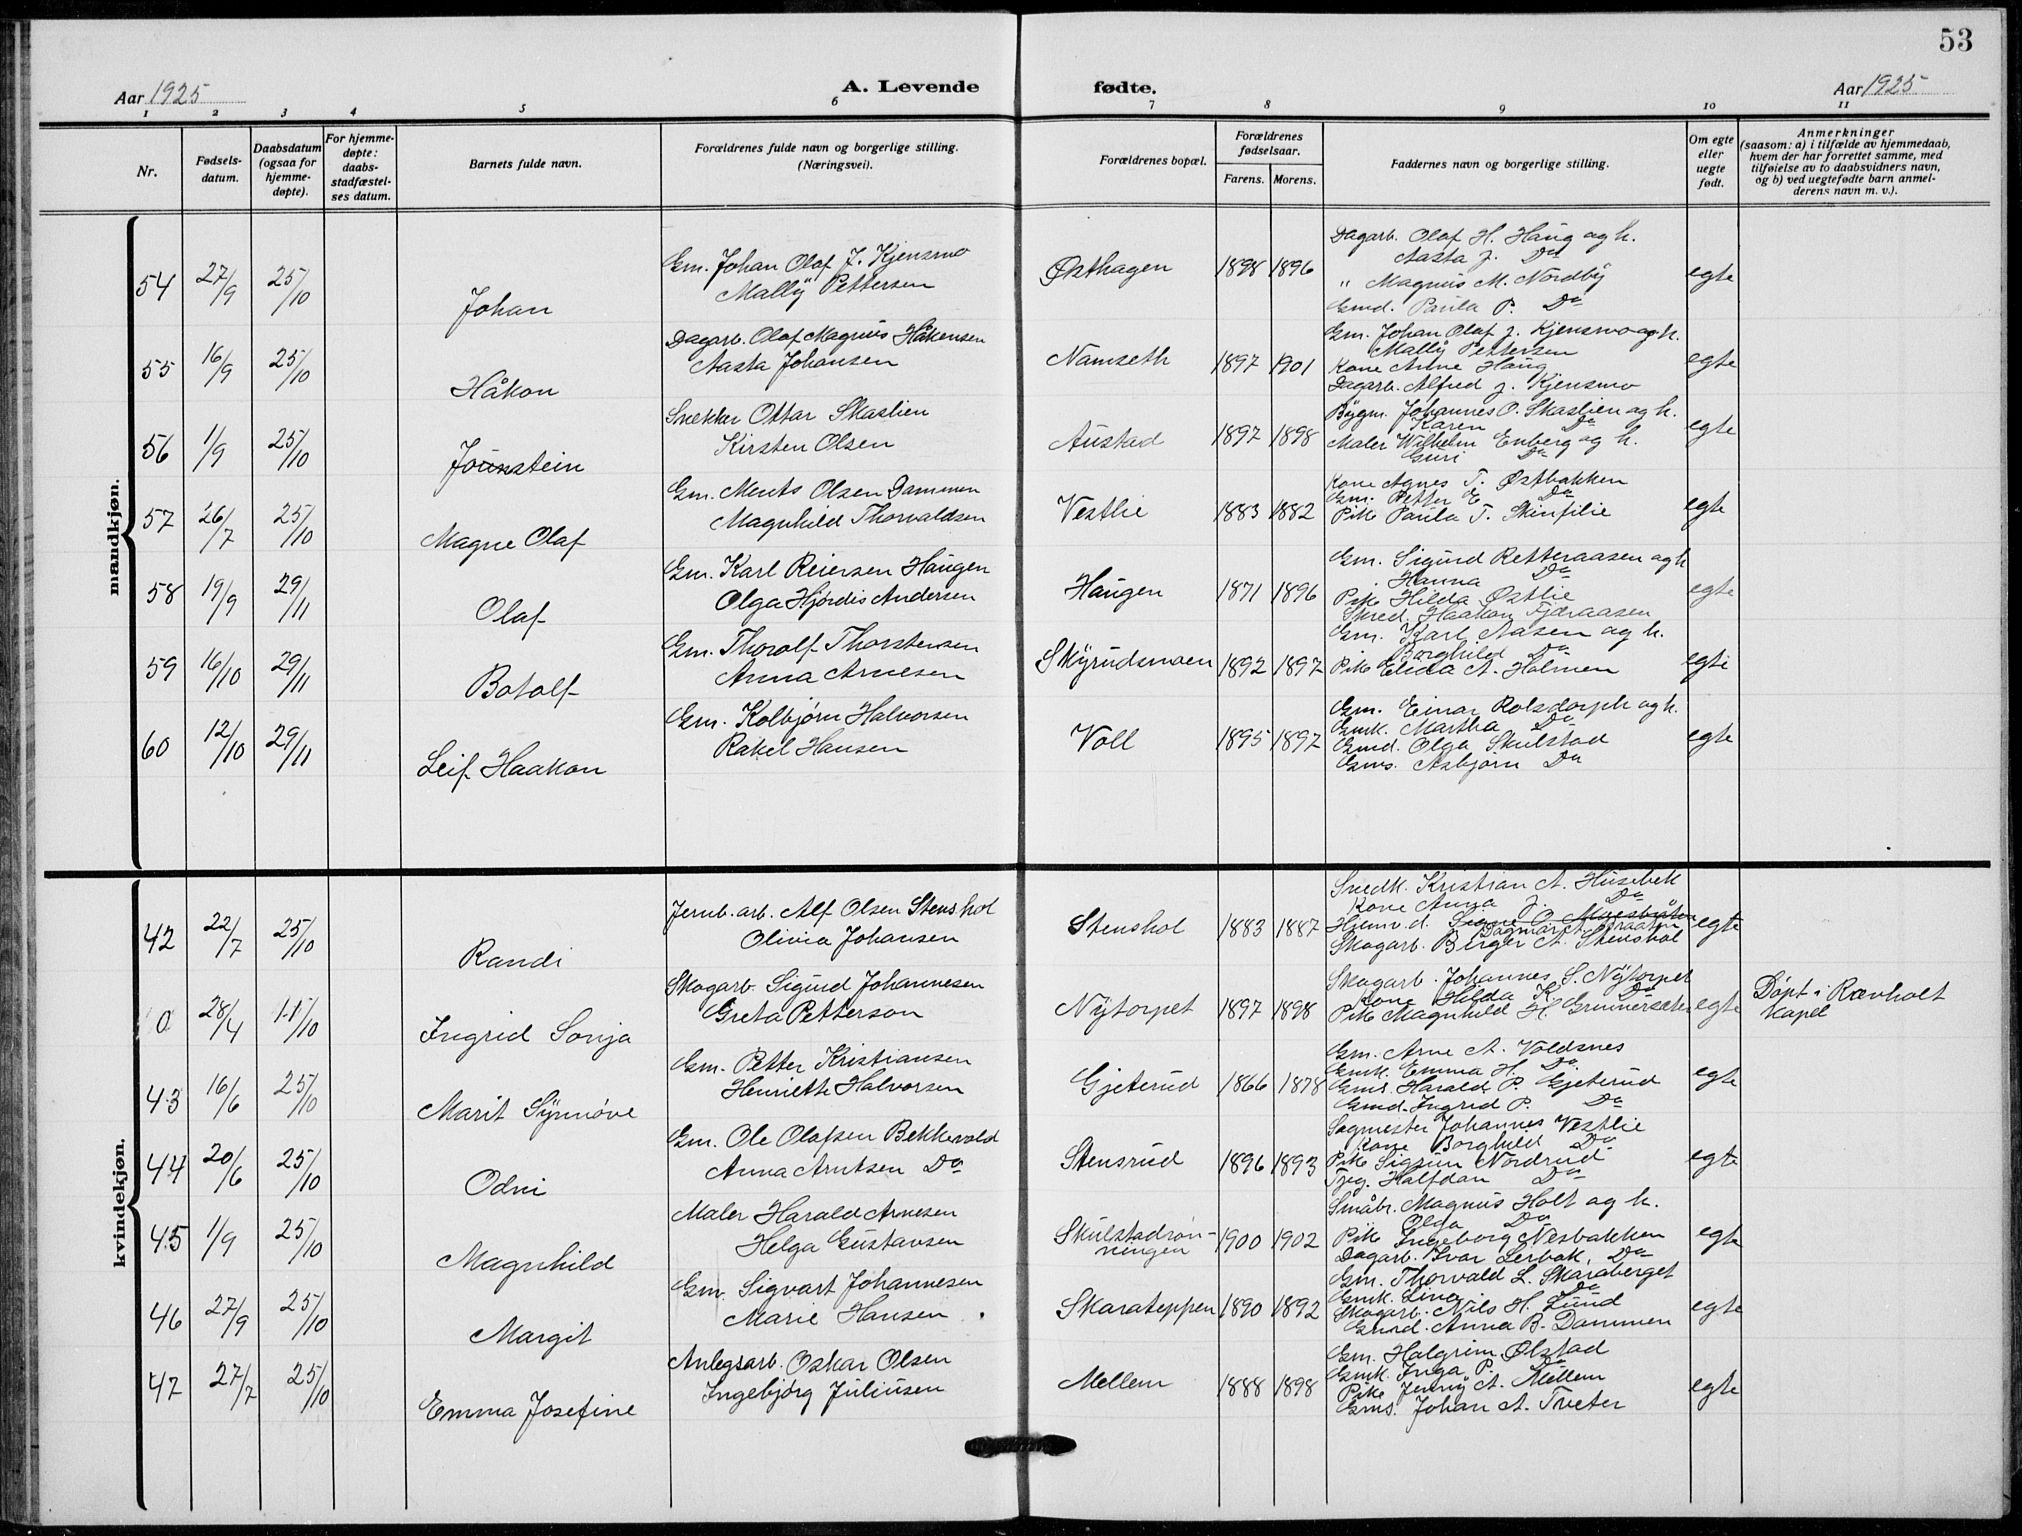 53
Aar 1925
A. Levende
fødte.
Aar 1925
1 2 3 4 5 6 7 8 9 10 11
Nr.
Fødsels-
datum.
Daabsdatum
(ogsaa for
hjemme-
døpte).
For hjemme-
døpte:
daabs-
stadfæstel-
ses datum.
Barnets fulde navn.
Forældrenes fulde navn og borgerlige stilling.
(Næringsvei).
Forældrenes bopæl.
Forældrenes
fødselsaar.
Farens. Morens.
Faddernes navn og borgerlige stilling.
Om egte
eller
uegte
født.
Anmerkninger
(saasom: a) i tilfælde av hjemmedaab,
hvem der har forrettet samme, med
tilføielse av to daabsvidners navn,
og b) ved uegtefødte barn anmel-
derens navn m. v.).
mandkjøn.
54 27/9 25/10
Johan
Gm. Johan Olaf J. Kjensmo
Mally Pettersen
Østhagen 1898 1896
Dagarb. Olaf H. Haug og h.
Aasta J. Do
" Magnus M. Nordby
Gmd. Paula P. Do
egte
55 16/9 25/10
Håkon
Dagarb. Olaf Magnus Håkensen
Aasta Johansen
Namseth 1897 1901
Gm. Johan Olaf J. Kjensmo og h.
Mally Pettersen
Kone Anne Haug
Dagarb. Alfred J. Kjensmo
egte
56 1/9 25/10
Jounstein
Snekker Ottar Skaslien
Kirsten Olsen
Austad 1897 1898
Bygm. Johannes O. Skaslien og h.
Karen Do
Maler Wilhelm Enberg og h.
Guri Do
egte
57 26/7 25/10
Magne Olaf
Gm. Ments Olsen Dammen
Magnhild Thorvaldsen
Vestlie 1883 1882
Kone Agnes T. Østbakken
Gm. Petter E. Do
Pike Paula T. Skinfilie
egte
58 19/9 29/11
Olaf
Gm. Karl Reiersen Haugen
Olga Hjørdis Andersen
Haugen 1871 1896
Gm. Sigurd Retteraasen og h
Hanna Do
Pike Hilda Østlie
Skred. Haakon Fjæraasen
egte
59 16/10 29/11
Botolf
Gm. Thorolf Thorstensen
Anna Arnesen
Skyrudsmoen 1892 1897
Gm. Karl Aasen og h.
Borghild Do
Pike Elida A. Holmen
egte
60 12/10 29/11
Leif Haakon
Gm. Kolbjørn Halvorsen
Rakel Hansen
Voll 1895 1897
Gm. Einar Rolsdorph og h.
Gmk. Martha Do
Gmd. Olga Skulstad
Gms. Asbjørn Do
egte
kvindekjøn.
42 22/7 25/10
Randi
Jernb. arb. Alf Olsen Stenshol
Olivia Johansen
Stenshol 1883 1887
Snedk. Kristian A. Husebek
Kone Anna J. Do
Husmv. d. Signe O.
Dagmar A.
Skogarb. Birger A. Stenshol
egte
0 28/4 11/10
Ingrid Sonja
Skogarb. Sigurd Johannesen
Greta Petterson
Nytorpet 1897 1898
Skogarb. Johannes S. Nytorpet
Kone Hilda K. Do
Pike Magnhild H. Grunnersæter
egte
Døpt i Ravholt
Kapel
43 16/6 25/10
Marit Synnøve
Gm. Petter Kristiansen
Henriette Halvorsen
Gjeterud 1866 1878
Gm. Arne A. Voldsnes
Gmk. Emma H. Do
Gms. Harald P. Gjeterud
Gmd. Ingrid P. Do
egte
44 20/6 25/10
Odni
Gm. Ole Olafsen Bekkevold
Anna Arntsen Do
Stensrud 1896 1893
Sagmester Johannes Vestlie
Kone Borghild Do
Pike Sigrun Nordrud
Tjeg. Halfdan Do
egte
45 1/9 25/10
Magnhild
Maler Harald Arnesen
Helga Gustavsen
Skulstadrøn-
ningen 1900 1902
Småbr. Magnus Holt og h.
Olga Do
Pike Ingeborg Nesbakken
Dagarb. Ivar Lerbak, Do
egte
46 27/9 25/10
Margit
Gm. Sigvart Johannesen
Marie Hansen
Skarateppen 1890 1892
Gm. Thorvald L. Skaraberget
Gmk. Lina Do
Skogarb. Nils H. Lund
Gmd. Anna B. Dammen
egte
47 27/7 25/10
Emma Josefine
Anlegsarb. Oskar Olsen
Ingebjørg Juliusen
Mellem 1888 1898
Gm. Halgrim Ølstad
Gmk. Inga P. Do
Pike Jenny A. Mellem
Gms. Johan A. Tveter
egte